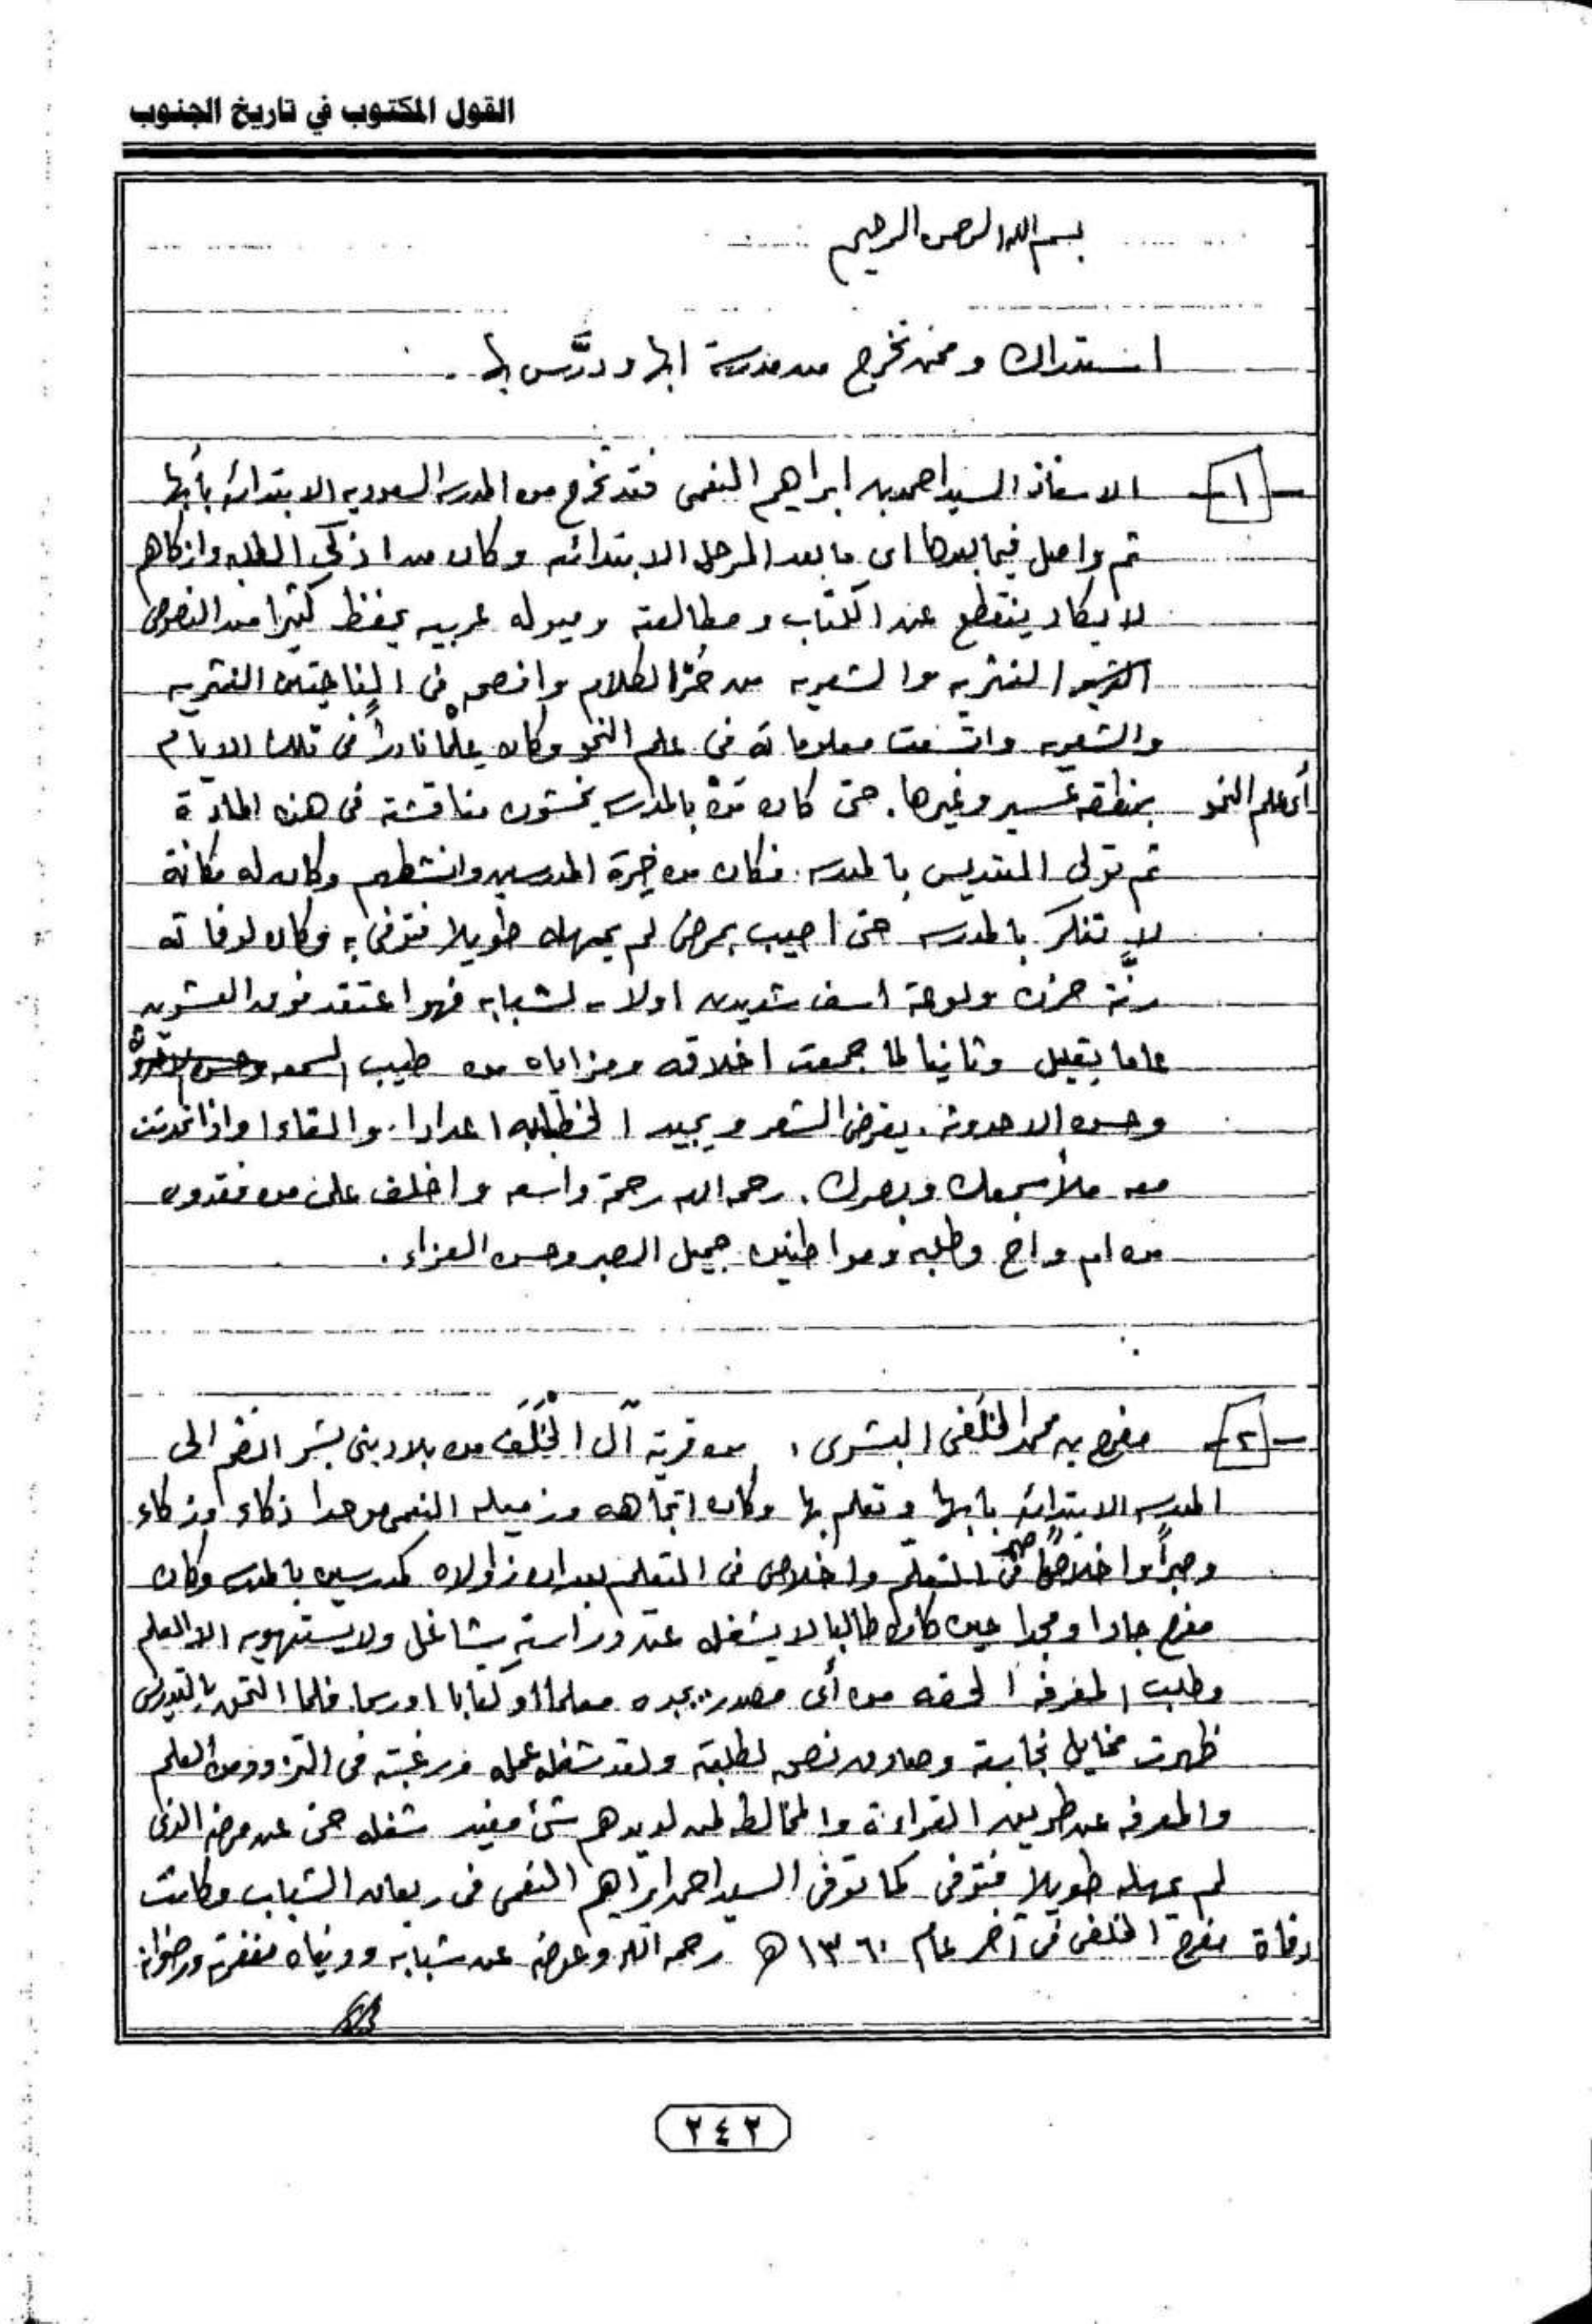 القول المكتوب في تاريخ الجنوب
بسم الله الرحمن الرحيم
استدراك وممن تخرج من مدرسة ابها ودرَّس بها .
-١- الاستاذ السيد احمد بن ابراهيم النعمى فقد تخرج من المدرسه السعوديه الابتدائيه بأبها
ثم واصل فيما بعدها اى ما بعد المرحله الابتدائيه وكان من اذكى الطلبه وازكاهم
لا يكاد ينقطع عن الكتاب ومطالعته وميوله عربيه يحفظ كثيرا من النصوص
النثريه والشعريه من حُرِّ الكلام وافصحه فى الناحيتين النثريه
والشعريه واتسعت معلوماته فى علم النحو وكان عِلْمًا نادراً فى تلك الايام
أى علم النحو بمنطقة عسير وغيرها. حتى كان مَنْ بالمدرسه يخشون مناقشته فى هذه المادة
ثم تولى التدريس بالمدرسه. فكان من خيرة المدرسين وانشطهم وكان له مكانة
لا تنكر بالمدرسه حتى اصيب بمرض لم يمهله طويلا فتوفى به وكان لوفاته
رنَّة حزن ولوعة اسف شديدين اولا لشبابه فهو اعتقد فوق العشرين
عاما بقليل وثانيا لما جمعت اخلاقه ومزاياه من طيب السمعه
وحسن الاحدوثه. يقرض الشعر ويجيد الخطابه اعدادا. والقاءا واذا تحدثت
معه ملأ سمعك وبصرك. رحمه الله رحمة واسعه واخلف على من فقدون
من ام واخ وطلبه ومواطنين جميل الصبر وحسن العزاء .
-٢- مفرح بن محمد الخَلَفى البشرى، من قرية آل الخَلَف من بلاد بنى بشر انضم الى
المدرسه الابتدائيه بابها وتعلم بها وكان اتجاهه وزميله النعمى موحدا ذكاء وزكاء
وصبراً واخلاصًا فى التعلّم واخلاص فى التعليم بعد ان زاولاه كمدرسين بالمدرسه وكان
مفرح جادا ومجدا حين كان طالبا لا يشغله عن دراسته شاغل ولا يستهويه الا العلم
وطلب المعرفه الحقه من أى مصدر يجده معلما او كتابا او رسما. فلما التحق بالتدريس
ظهرت مخايل نجابته وصادق نصحه لطلبته ولقد شغله عمله ورغبته فى التزود من العلم
والمعرفه عن طريق القراءة والمخالطه لمن لديهم شئ مفيد شغله حتى عن مرضه الذى
لم يمهله طويلا فتوفى كما توفى السيد احمد ابراهيم النعمى فى ريعان الشباب وكانت
وفاة مفرح الخلفى فى آخر عام ١٣٦٠ هـ رحمه الله وعوضه عن شبابه ودنياه مغفرته ورضوانه
٢٤٢